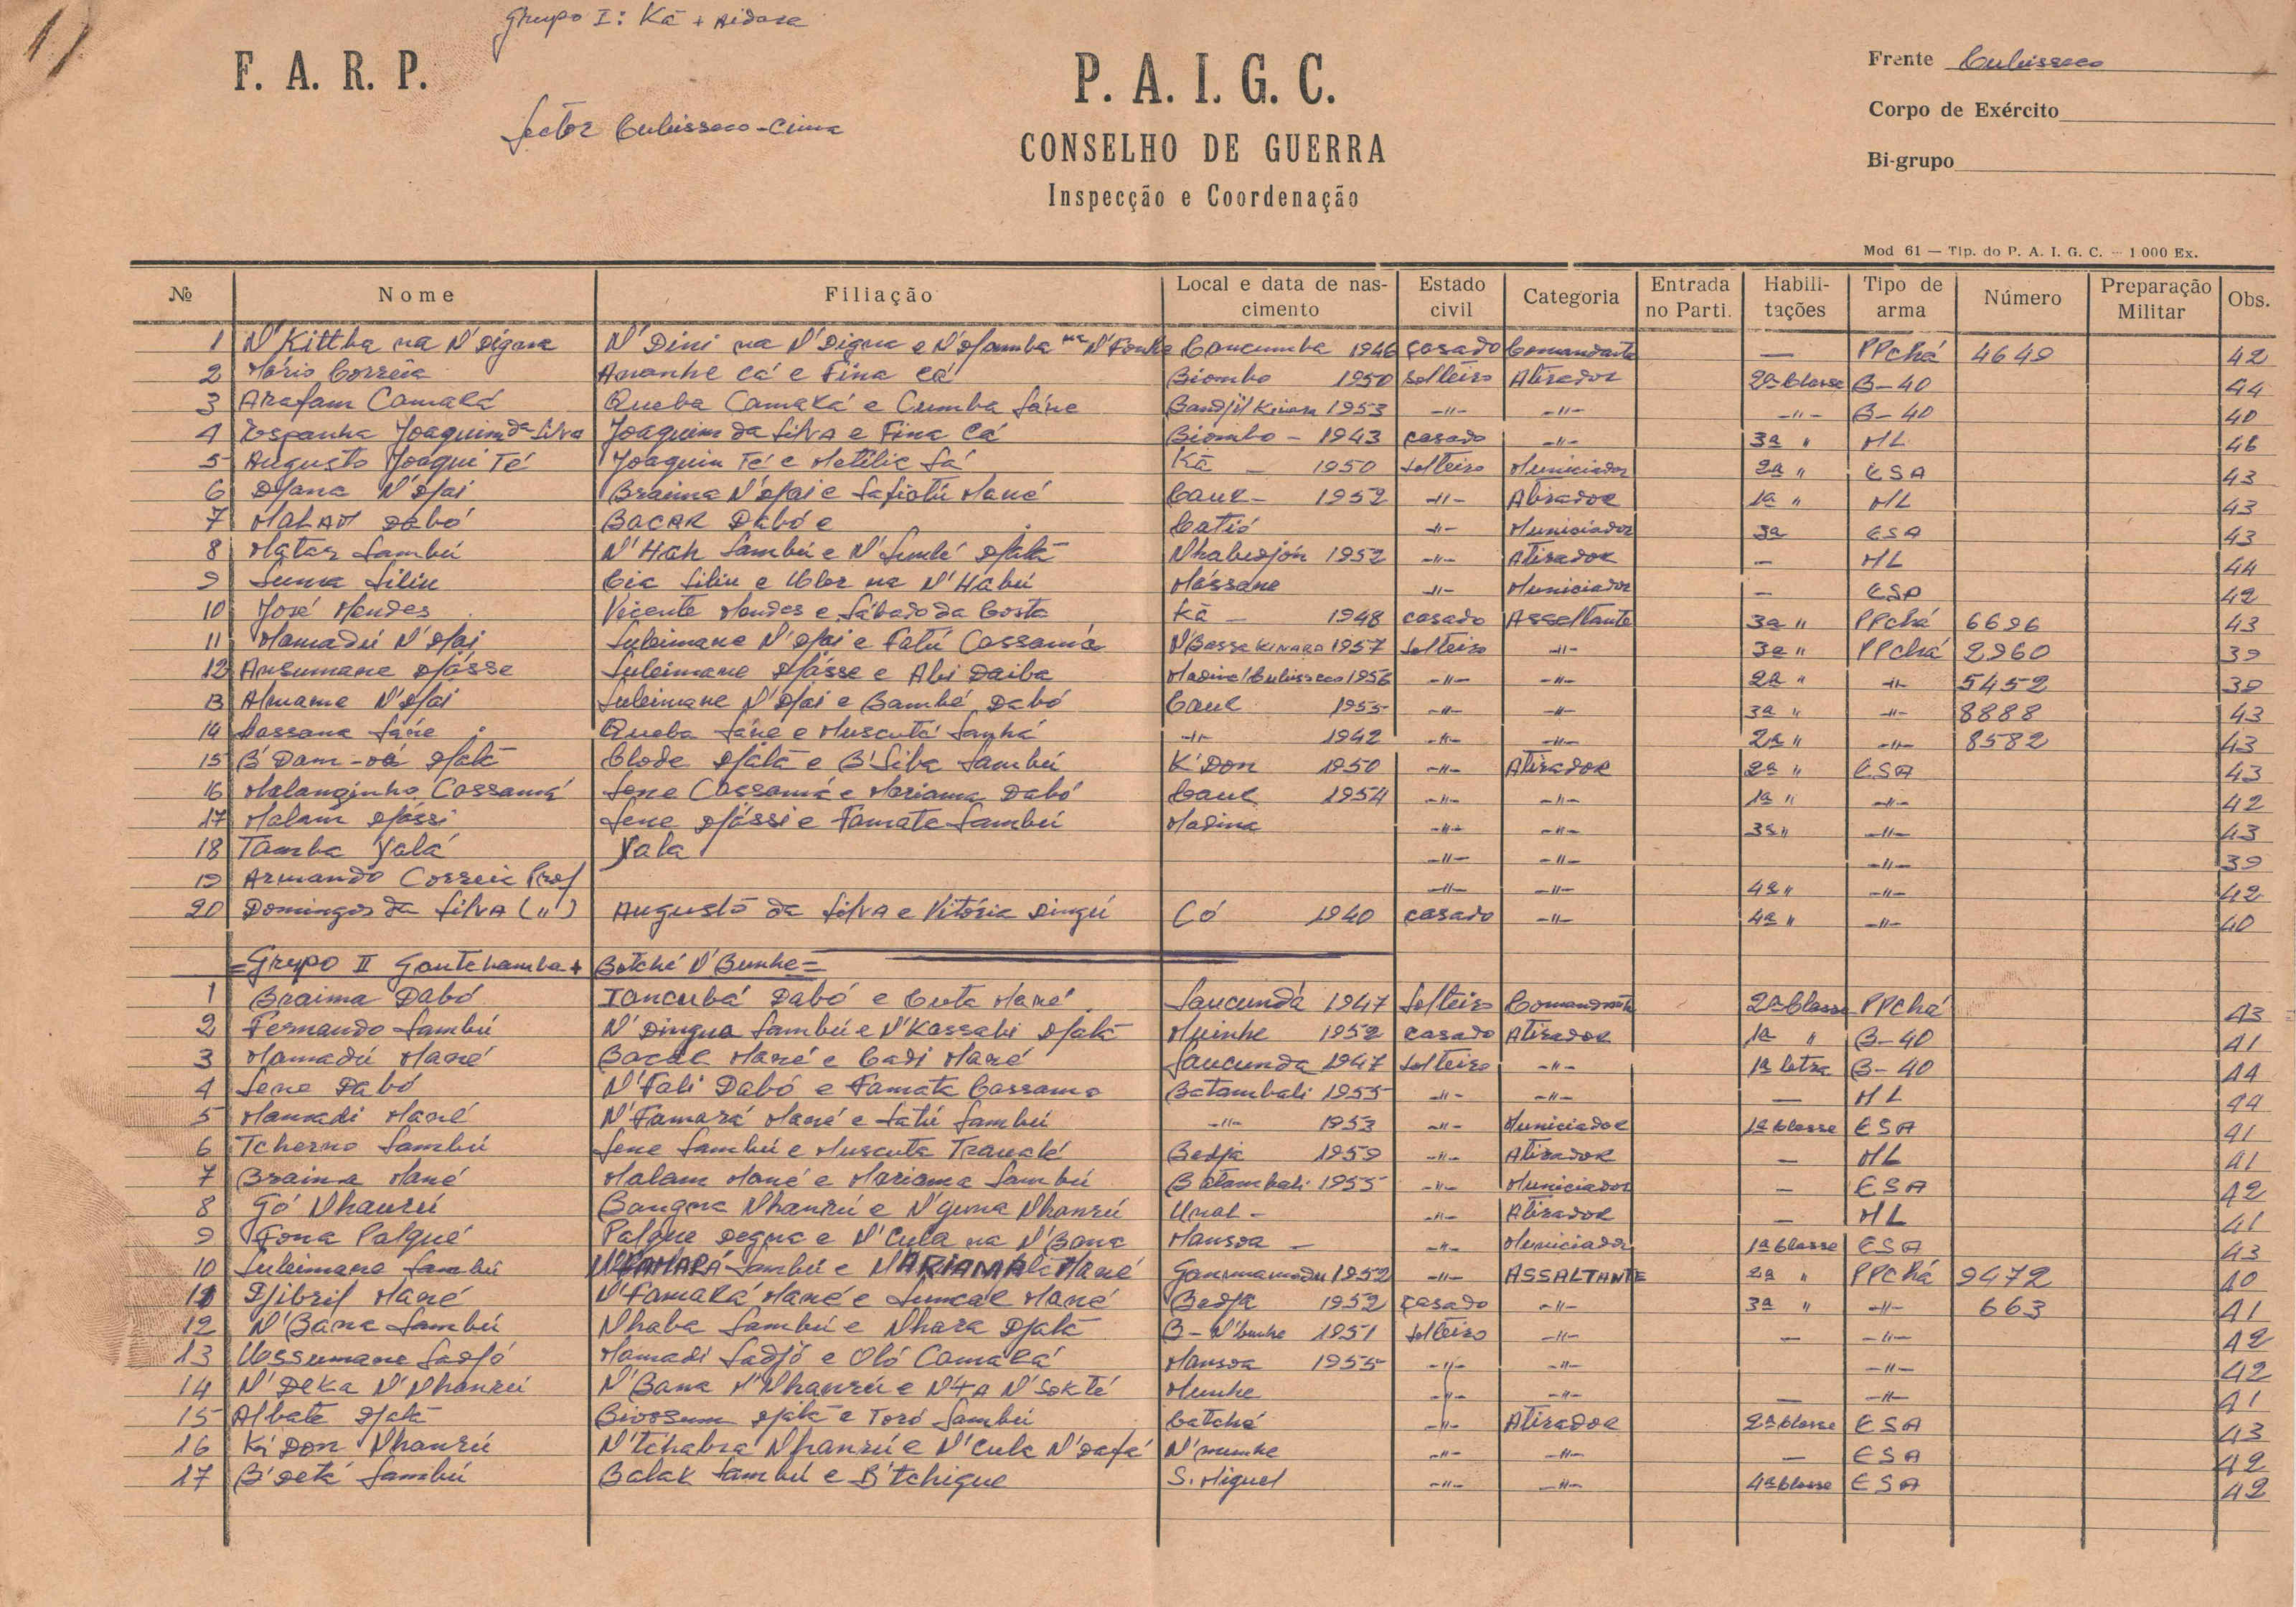 1)
Grupo I: Kã + Aidara
F. A. R. P.
P. A. I. G. C.
Frente Cubisseco
Sector Cubisseco-Cima
Corpo de Exército
CONSELHO DE GUERRA
Bi-grupo
Inspecção e Coordenação
Mod 61 — Tip. do P. A. I. G. C. — 1 000 Ex.
№ Nome Filiação Local e data de nascimento Estado civil Categoria Entrada no Parti. Habilitações Tipo de arma Número Preparação Militar Obs.
1 N'Kittba na N'Digna N'Dini na N'Digna e N'Djamba na N'Fonke Concumba 1946 casado Comandante — PPchá 4649 42
2 Mário Corrêia Ananhe Cá e Fina Cá Biombo 1950 solteiro Atirador 2ª classe B-40 44
3 Arafam Camará Queba Camará e Cumba Sáne 1953 -"- -"- -"- B-40 40
4 Espanha Joaquim da Silva Joaquim da Silva e Fina Cá Biombo - 1943 casado -"- 3ª " ML 46
5 Augusto Joaqui Té Joaquim Té e Sá Kã — 1950 solteiro Municiador 2ª " ESA 43
6 Djana N'Djai Braima N'Djai e Safiatú Mané Caur - 1952 -"- Atirador 1ª " ML 43
7 Malam Dabó Bacar Dabó e Catió -"- Municiador 3ª ESA 43
8 Matar Sambú N'Hah Sambú e N'Sumbé Djatá Nhabidjón 1952 -"- Atirador - ML 44
9 Suma Siliu Cia Siliu e na N'Habú Mássane -"- Municiador - ESA 42
10 José Mendes Vicente Mendes e Sábado da Costa Kã — 1948 casado Assaltante 3ª " PPchá 6696 43
11 Mamadú N'Djai Suleimane N'Djai e Fatú Cassamá N'Bassa KINARA 1957 solteiro -"- 3ª " PPchá 2960 39
12 Ansumane Djásse Suleimane Djásse e Abi Daiba Madina/Cubisseco 1956 -"- -"- 2ª " -"- 5452 39
13 Almame N'Djai Suleimane N'Djai e Bambé Dabó Caur 1955 -"- -"- 3ª " -"- 8888 43
14 Lassana Sáne Queba Sáne e Muscutá Sanhá -"- 1942 -"- -"- 2ª " -"- 8582 43
15 B'Dam-ná Djatá Clode Djatá e B'Siba Sambú K'Don 1950 -"- Atirador 2ª " ESA 43
16 Malanginho Cassamá Sene Cassamá e Mariama Dabó Caur 1954 -"- -"- 1ª " -"- 42
17 Malam Djássi Sene Djássi e Famata Sambú Madina -"- -"- 3ª " -"- 43
18 Tamba Yalá Yala -"- -"- -"- 39
19 Armando Correia Prof -"- -"- 4ª " -"- 42
20 Domingos da Silva (") Augusto da Silva e Vitória Dingú Có 1940 casado -"- 4ª " -"- 40
= Grupo II Gantchamba + Botché N'Bunhe =
1 Braima Dabó Iancubá Dabó e Cuta Mané Saucundá 1947 Solteiro Comandante 2ª Classe PPchá 43
2 Fernando Sambú N'Dingna Sambú e N'Kassabi Djatá Muinhe 1952 casado Atirador 1ª " B-40 41
3 Mamadú Mané Bacar Mané e Cadi Mané Saucunda 1947 Solteiro -"- 1ª letra B-40 44
4 Sene Dabó N'Fali Dabó e Famata Cassama Batambali 1955 -"- -"- — ML 44
5 Mamadi Mané N'Famará Mané e Satú Sambú -"- 1953 -"- Municiador 1ª classe ESA 41
6 Tcherno Sambú Sene Sambú e Muscuta Traualé Bedja 1959 -"- Atirador - ML 41
7 Braima Mané Malam Mané e Mariama Sambú Batambali 1955 -"- Municiador - ESA 42
8 Gó Nhanrú Bangna Nhanrú e N'guna Nhanrú Unal - -"- Atirador - ML 41
9 Fona Palqué Palque Degna e N'Cula na N'Bana Mansoa - -"- Municiador 1ª classe ESA 43
10 Suleimane Sambú N'FAMARÁ Sambú e MARIAMA Mané 1952 -"- ASSALTANTE 2ª " PPchá 9472 40
11 Djibril Mané N'Famará Mané e Suncar Mané Bedja 1952 casado -"- 3ª " -"- 663 41
12 N'Bana Sambú Nhaba Sambú e Nhara Djatá B-N'bunhe 1951 Solteiro -"- - -"- 42
13 Ussumane Sadjó Mamadi Sadjó e Oló Camará Mansoa 1955 -"- -"- -"- 42
14 N'Deka N'Nhanrú N'Bana N'Nhanrú e N'ta N'Sokté Munhe -"- -"- — -"- 41
15 Albate Djatá Biossum Djatá e Toró Sambú Catché -"- Atirador 2ª classe ESA 43
16 Ki Don Nhanrú N'tchabra Nhanrú e N'Cula N'Dafá N'munhe -"- -"- — ESA 42
17 B'Detá Sambú Balak Sambú e B'tchigue S. Miguel -"- -"- 4ª classe ESA 42